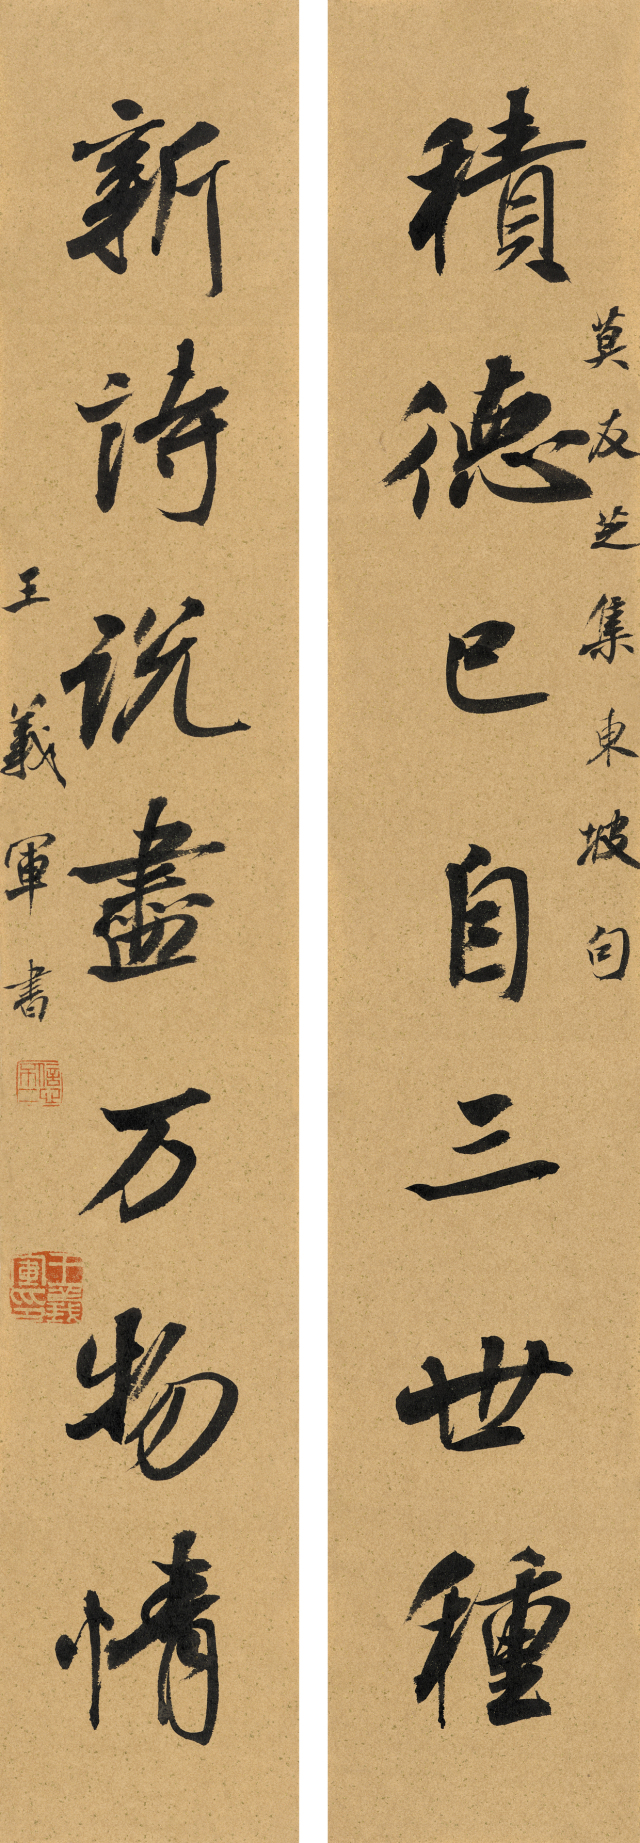 莫友芝集東坡句
積德已自三世種
新詩説盡万物情
王義軍書
王義軍印